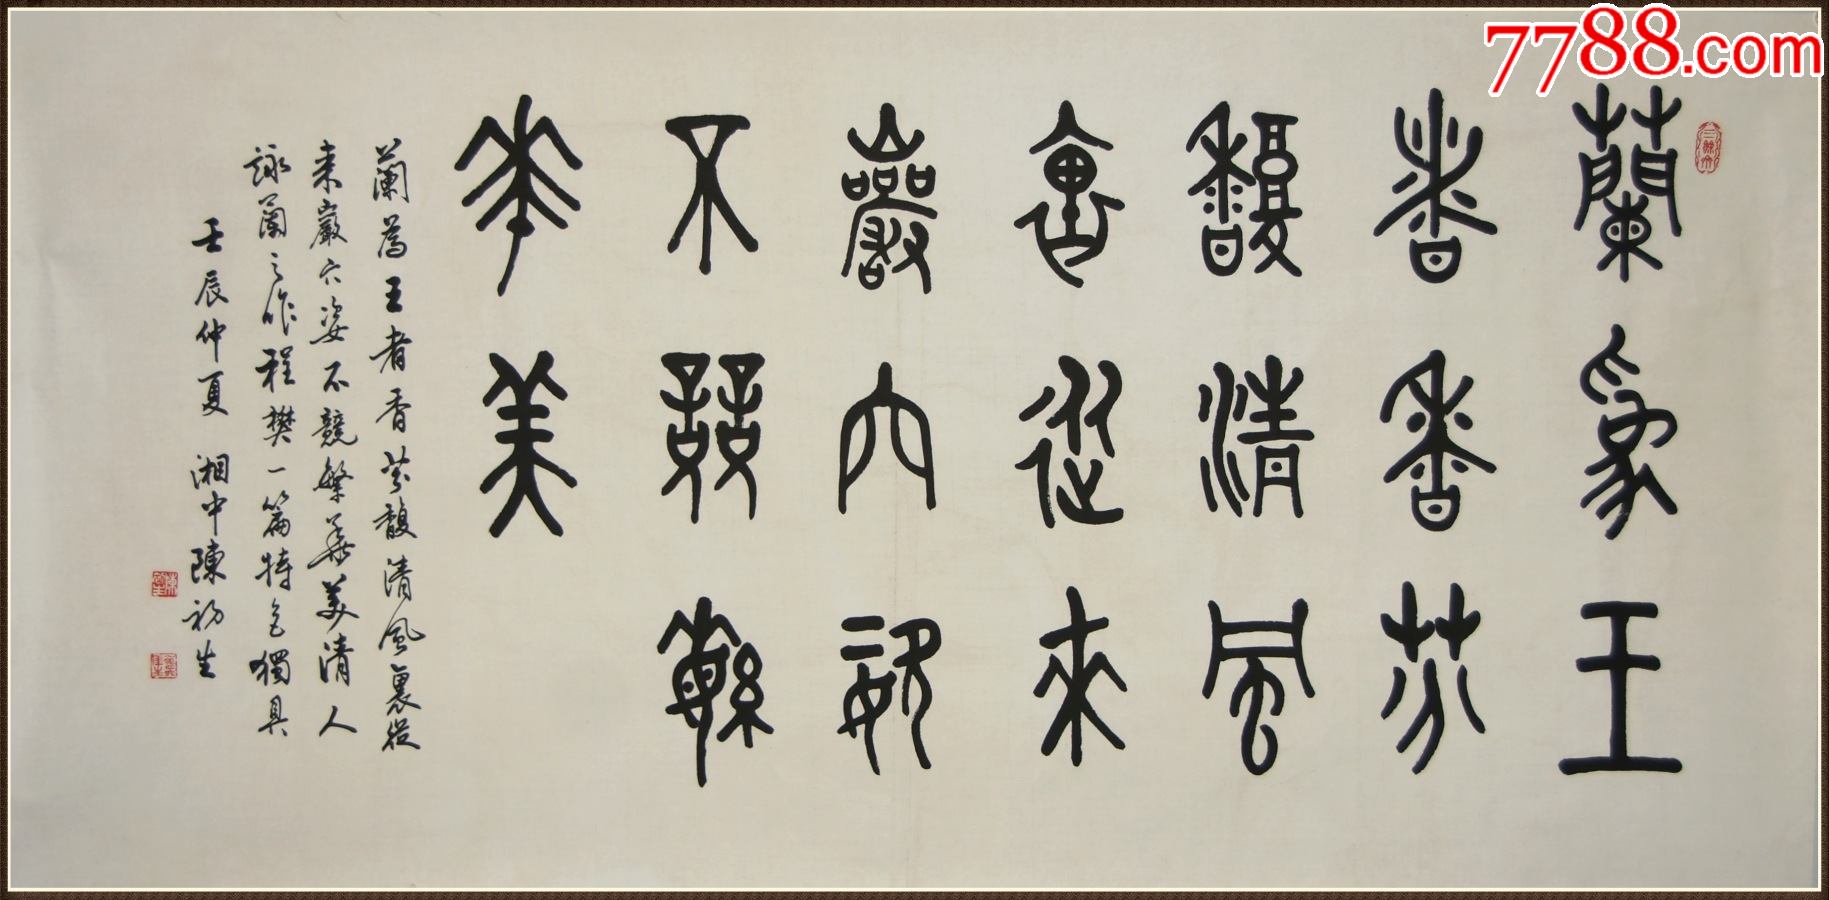 7788.com
蘭為王
者香芬
馥清風
裏從來
巖穴姿
不競繁
華美
蘭為王者香芬馥清風裏從
來巖穴姿不競繁華美清人
詠蘭之作程樊一篇特色獨具
壬辰仲夏 湘中陳初生